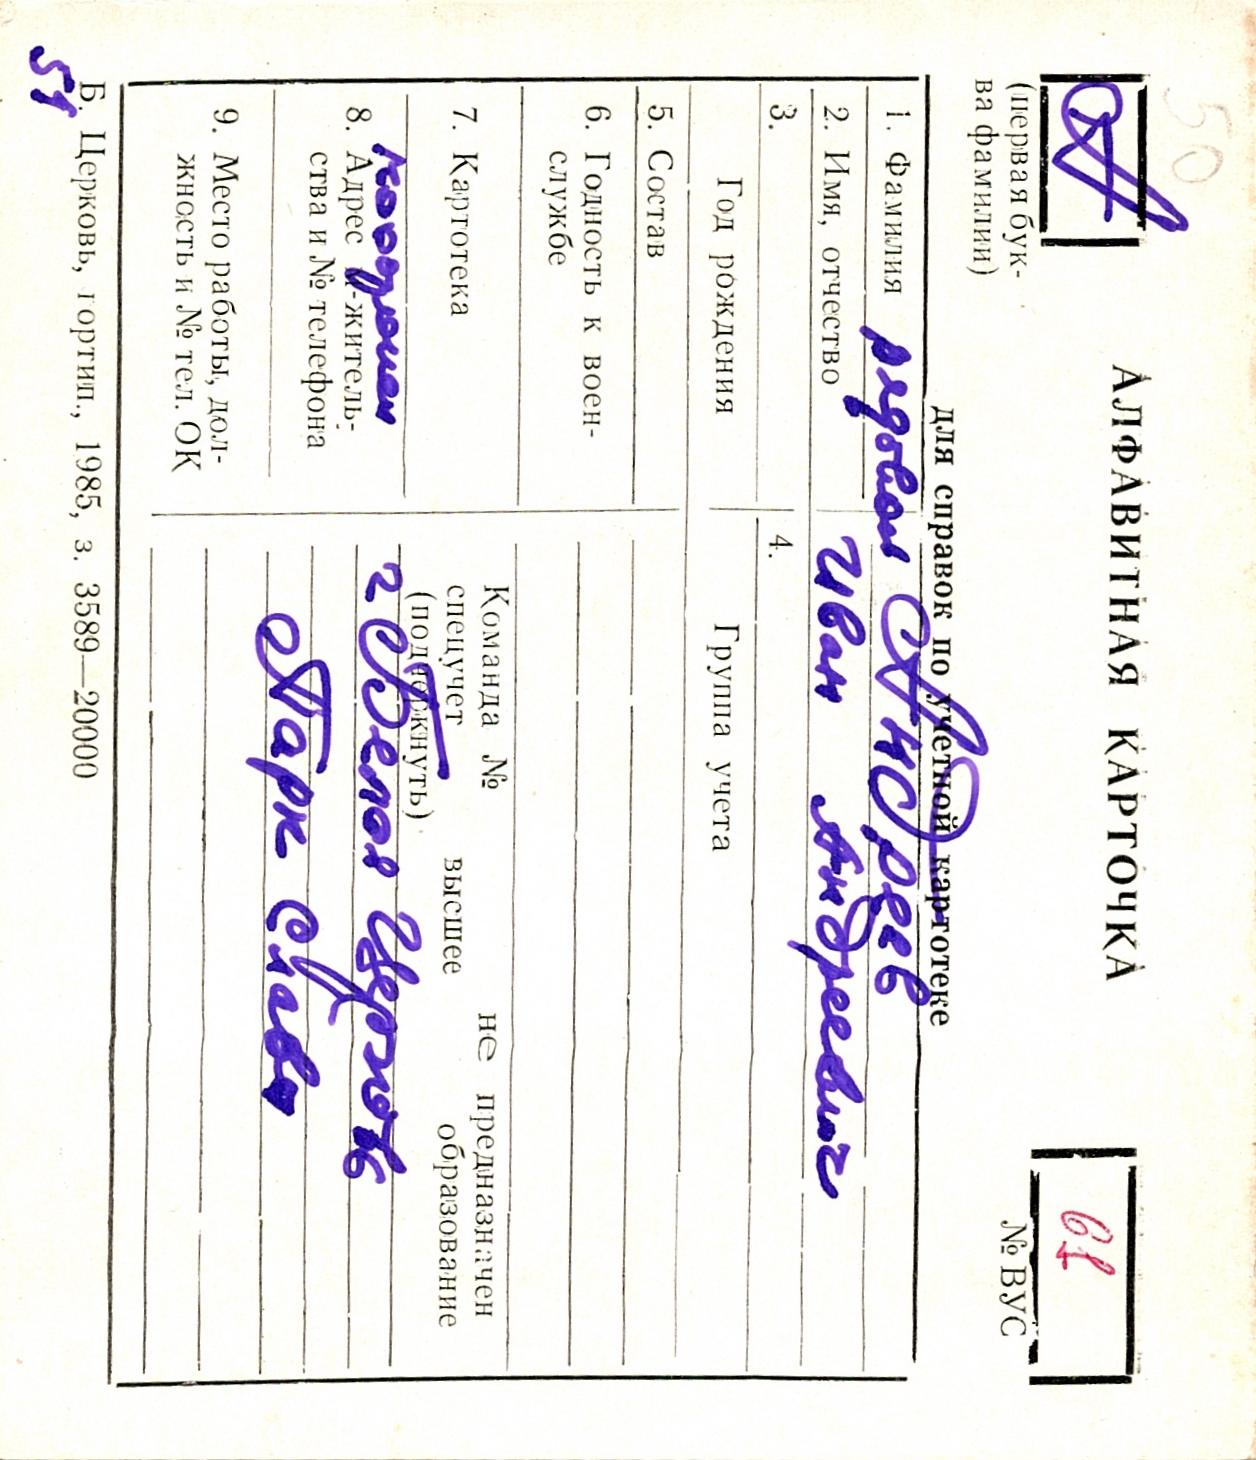 50
А
(первая бук-
ва фамилии)
АЛФАВИТНАЯ КАРТОЧКА
для справок по учетной картотеке
61
№ ВУС
1. Фамилия рядовой Андреев
2. Имя, отчество Иван Андреевич
3. 4.
Год рождения Группа учета
5. Состав
6. Годность к воен-
службе
7. Картотека
Команда № не предназначен
спецучет высшее образование
(подчеркнуть)
похоронен
8. Адрес жительь-
ства и № телефона
г. Белая Церковь
Парк Славы
9. Место работы, дол-
жность и № тел. ОК
Б. Церковь, гортип., 1985, з. 3589—20000
51